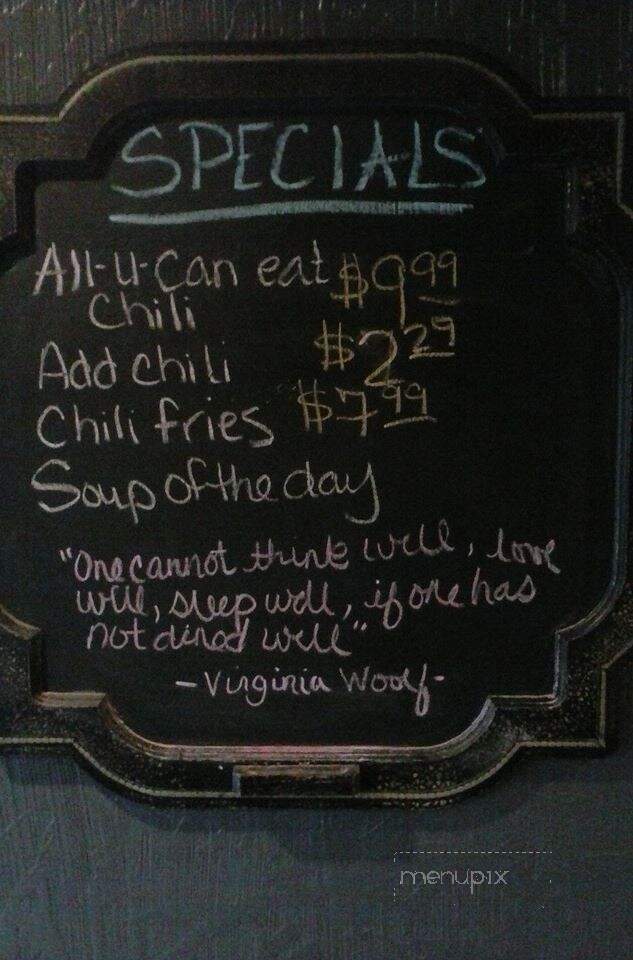 SPECIALS
All-u-can eat $9.99
Chili
Add chili $2.29
Chili fries $7.99
Soup of the day
"One cannot think well, love
well, sleep well, if one has
not dined well"
-Virginia Woolf-
menupix